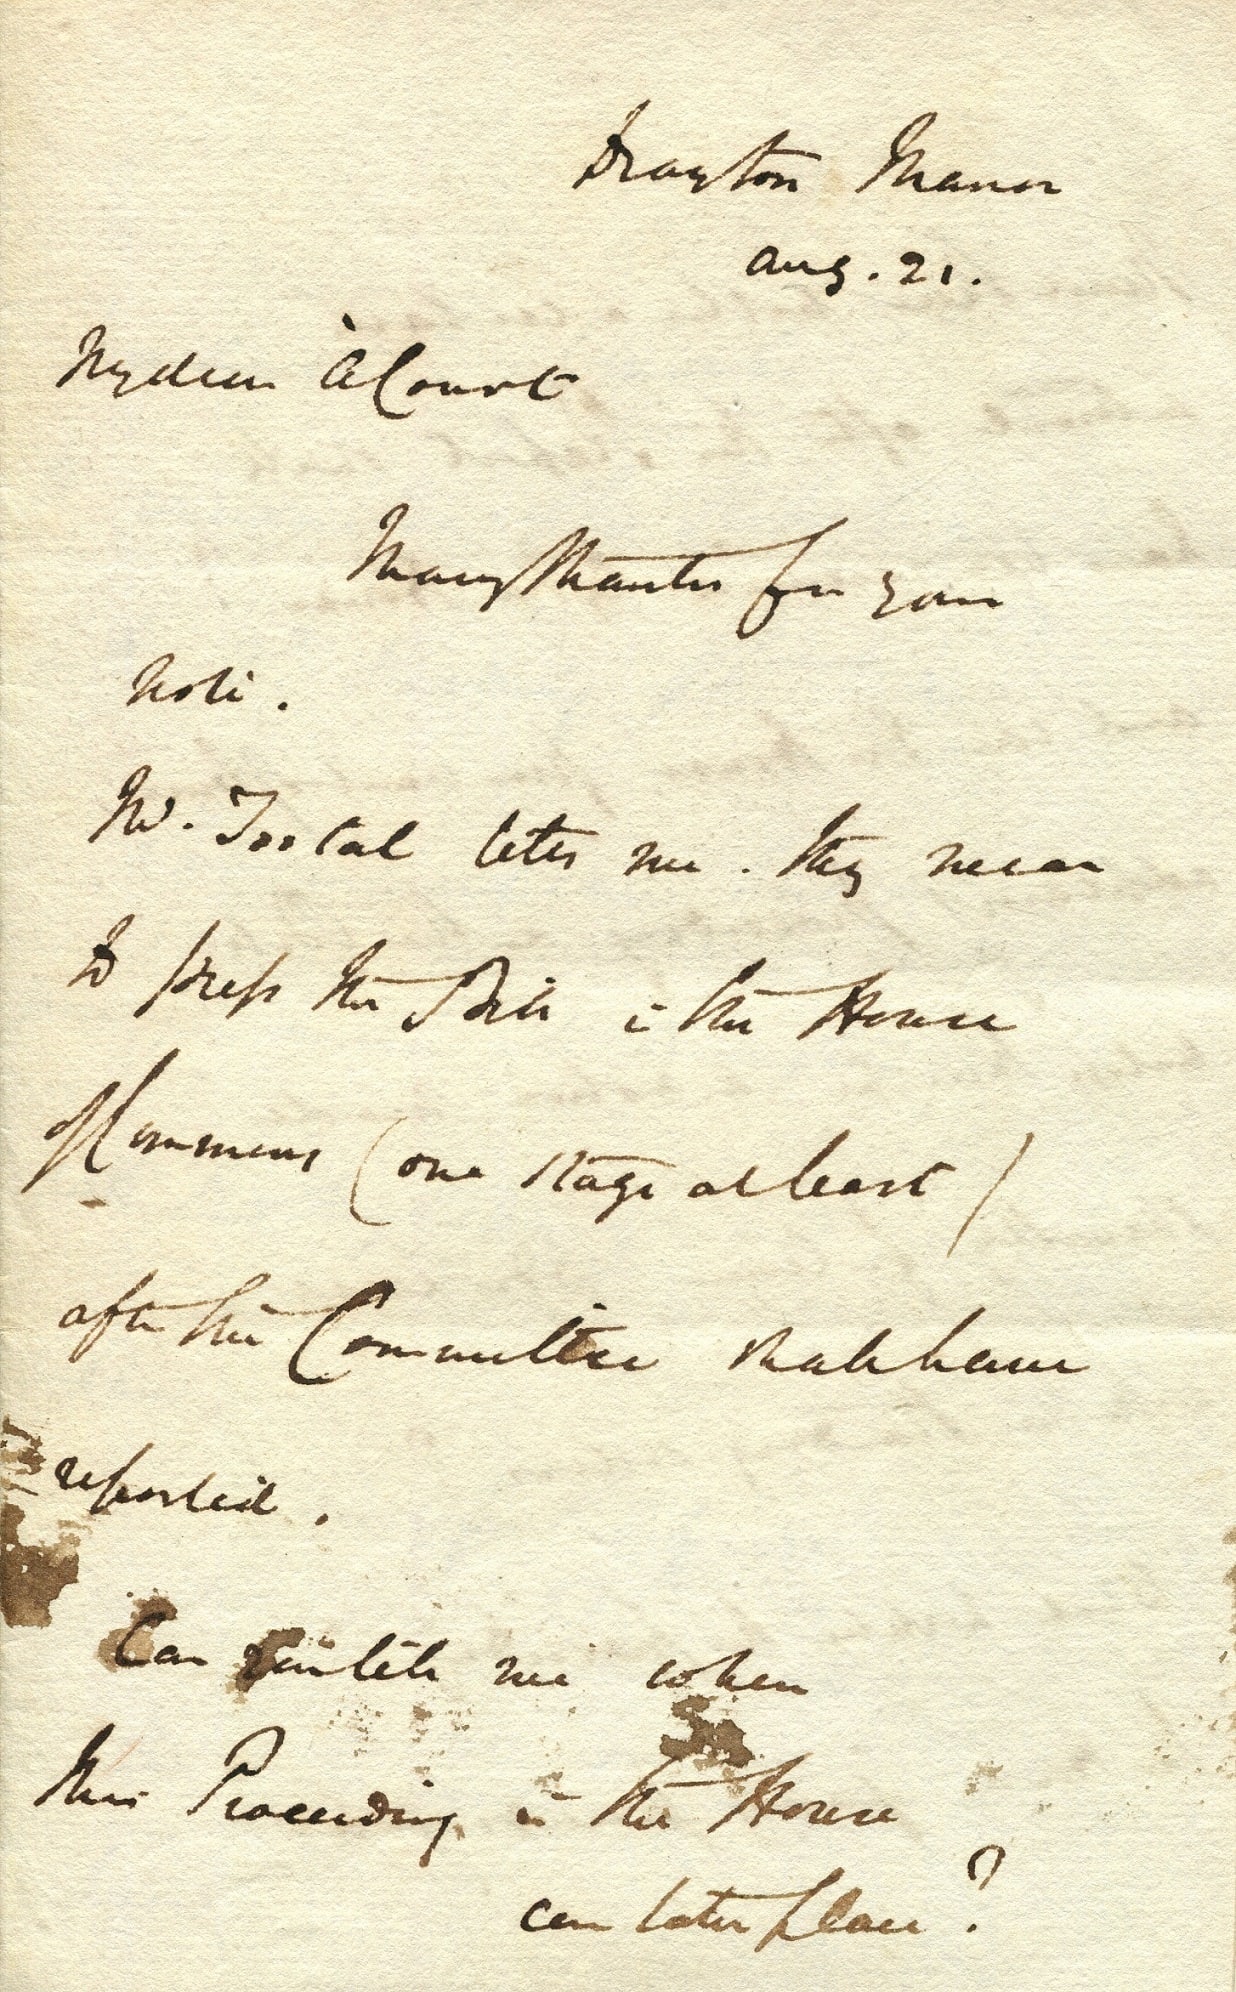 Drayton Manor
Aug. 21.
My dear A'Court
Many thanks for your
note.
Mr. Tootal tells me. they mean
to press the Bill in the House
of Commons (one stage at least)
after the Committee shall have
reported.
Can you tell me when
this Proceeding in the House
can take place?